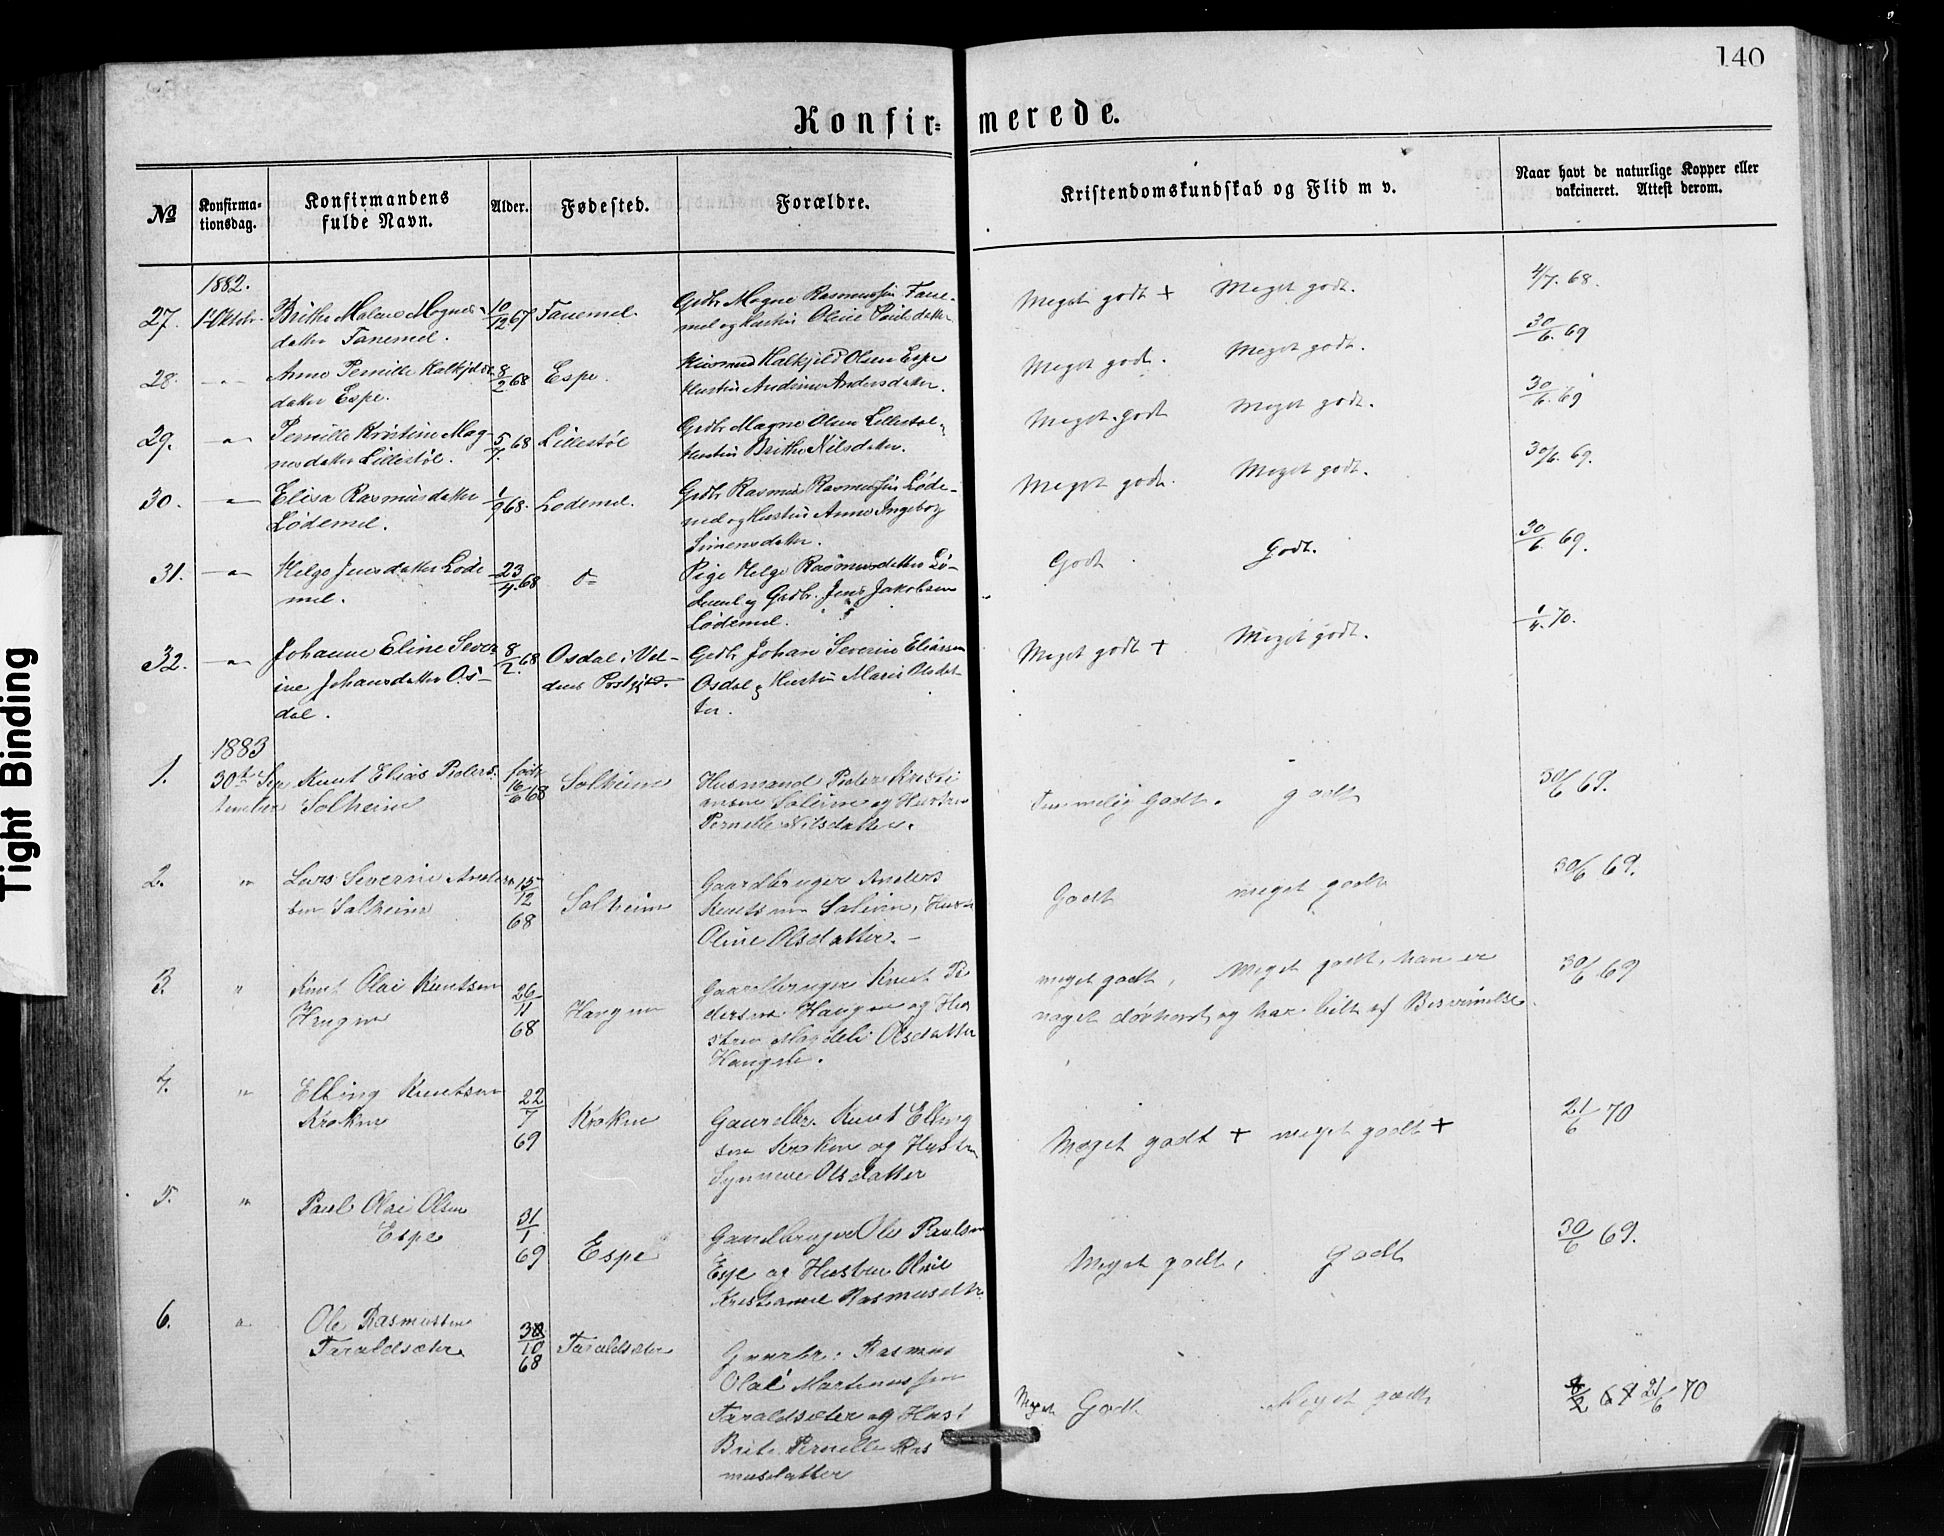 140
Konfir= merede.
No
Konfirma-
tionsdag.
Konfirmandens
fulde Navn.
Alder.
Fødested.
Forældre.
Kristendomskundskab og Flid m v.
Naar havt de naturlige Kopper eller
vakcineret. Attest derom.
1882.
27. 1 Oktbr. Brithe Malene Magnes-
datter Tanemel.
10/12 67 Tanemel.
Grdbr Magne Rasmussen Tane-
mel og Hustru Oline Pauls datter
Meget godt + Meget godt.
4/7. 68.
28. -"- Anne Pernille Halkjelds
datter Espe.
8/2 68 Espe.
Husmand Halkjeld Olsen Espe
Hustru Andrine Andersdatter.
Meget godt. Meget godt.
30/6. 69
29. -"- Pernille Kristine Mag-
nesdatter Lillestøl.
5/7. 68 Lillestøl
Grdbr Magne Olsen Lillestøl
Hustru Brithe Nilsdatter.
Meget godt Meget godt.
30/6. 69
30. -"- Elisa Rasmusdatter
Lødemel.
1/9 68. Lødemel.
Grdbr Rasmus Rasmussen Løde-
mel og Hustru Anne Ingeborg
Simensdatter.
Meget godt. Meget godt.
30/6. 69.
31. -"- Helge Jensdatter Løde
mel.
23/4. 68 do
Pige Helge Rasmusdatter Lø-
demel og Grdbr. Jens Jakobsen
Lødemel.
Godt. Godt.
30/6. 69.
32. -"- Johanne Eline Sever
ine Johansdatter Os-
dal.
8/2. 68 Osdal i Vol-
dens Prstgjd.
Grdbr Johan Severin Eliassen
Osdal og Hustru Marie Olsdat-
ter.
Meget godt + Meget godt.
70.
1883
1. 30te Sep
tember
Knut Elias Peders.
Solheim
født
16/6 68
Solheim
Husmand Peder Kristi
ansen Soleim og Hustru
Pernille Nilsdatter.
Temmelig Godt. godt
30/6 69.
2. " Lars Severin Anders
sen Solheim
15/12
68
Solheim
Gaardbruger Anders
Knutsen Soleim, Hustr
Oline Olsdatter. -
Godt meget godt
30/6 69.
3. " Knut Olai Knutsen
Haugen
26/11
68
Haugen
Gaardbruger Knut Pe
dersen Haugen og Hu
stru Magdeli Olsdatter
Haugen.
meget godt, Meget godt, han er
noget døvhørt og har lidt af Besvimelse.
30/6 69
4. " Elling Knutsen
Kroken
22/7
69
Kroken
Gaardbr. Knut Elling
sen Kroken og Hustru
Synneve Olsdatter
Meget godt + meget godt +
21/6 70
5. " Paul Olai Olsen
Espe
31/1
69
Espe
Gaardbruger Ole Paulsen
Espe og Hustru Oline
Kristianne Rasmusdtr.
Meget godt, godt
30/6 69.
6. " Ole Rasmussen
Taraldsæter
30/10
68
Taraldsæter
Gaardbr: Rasmus
Olai Martinussen
Taraldsæter og Hust
Brite Pernille Ras
musdatter
Meget Godt Meget godt
21/6 70
Tight Binding